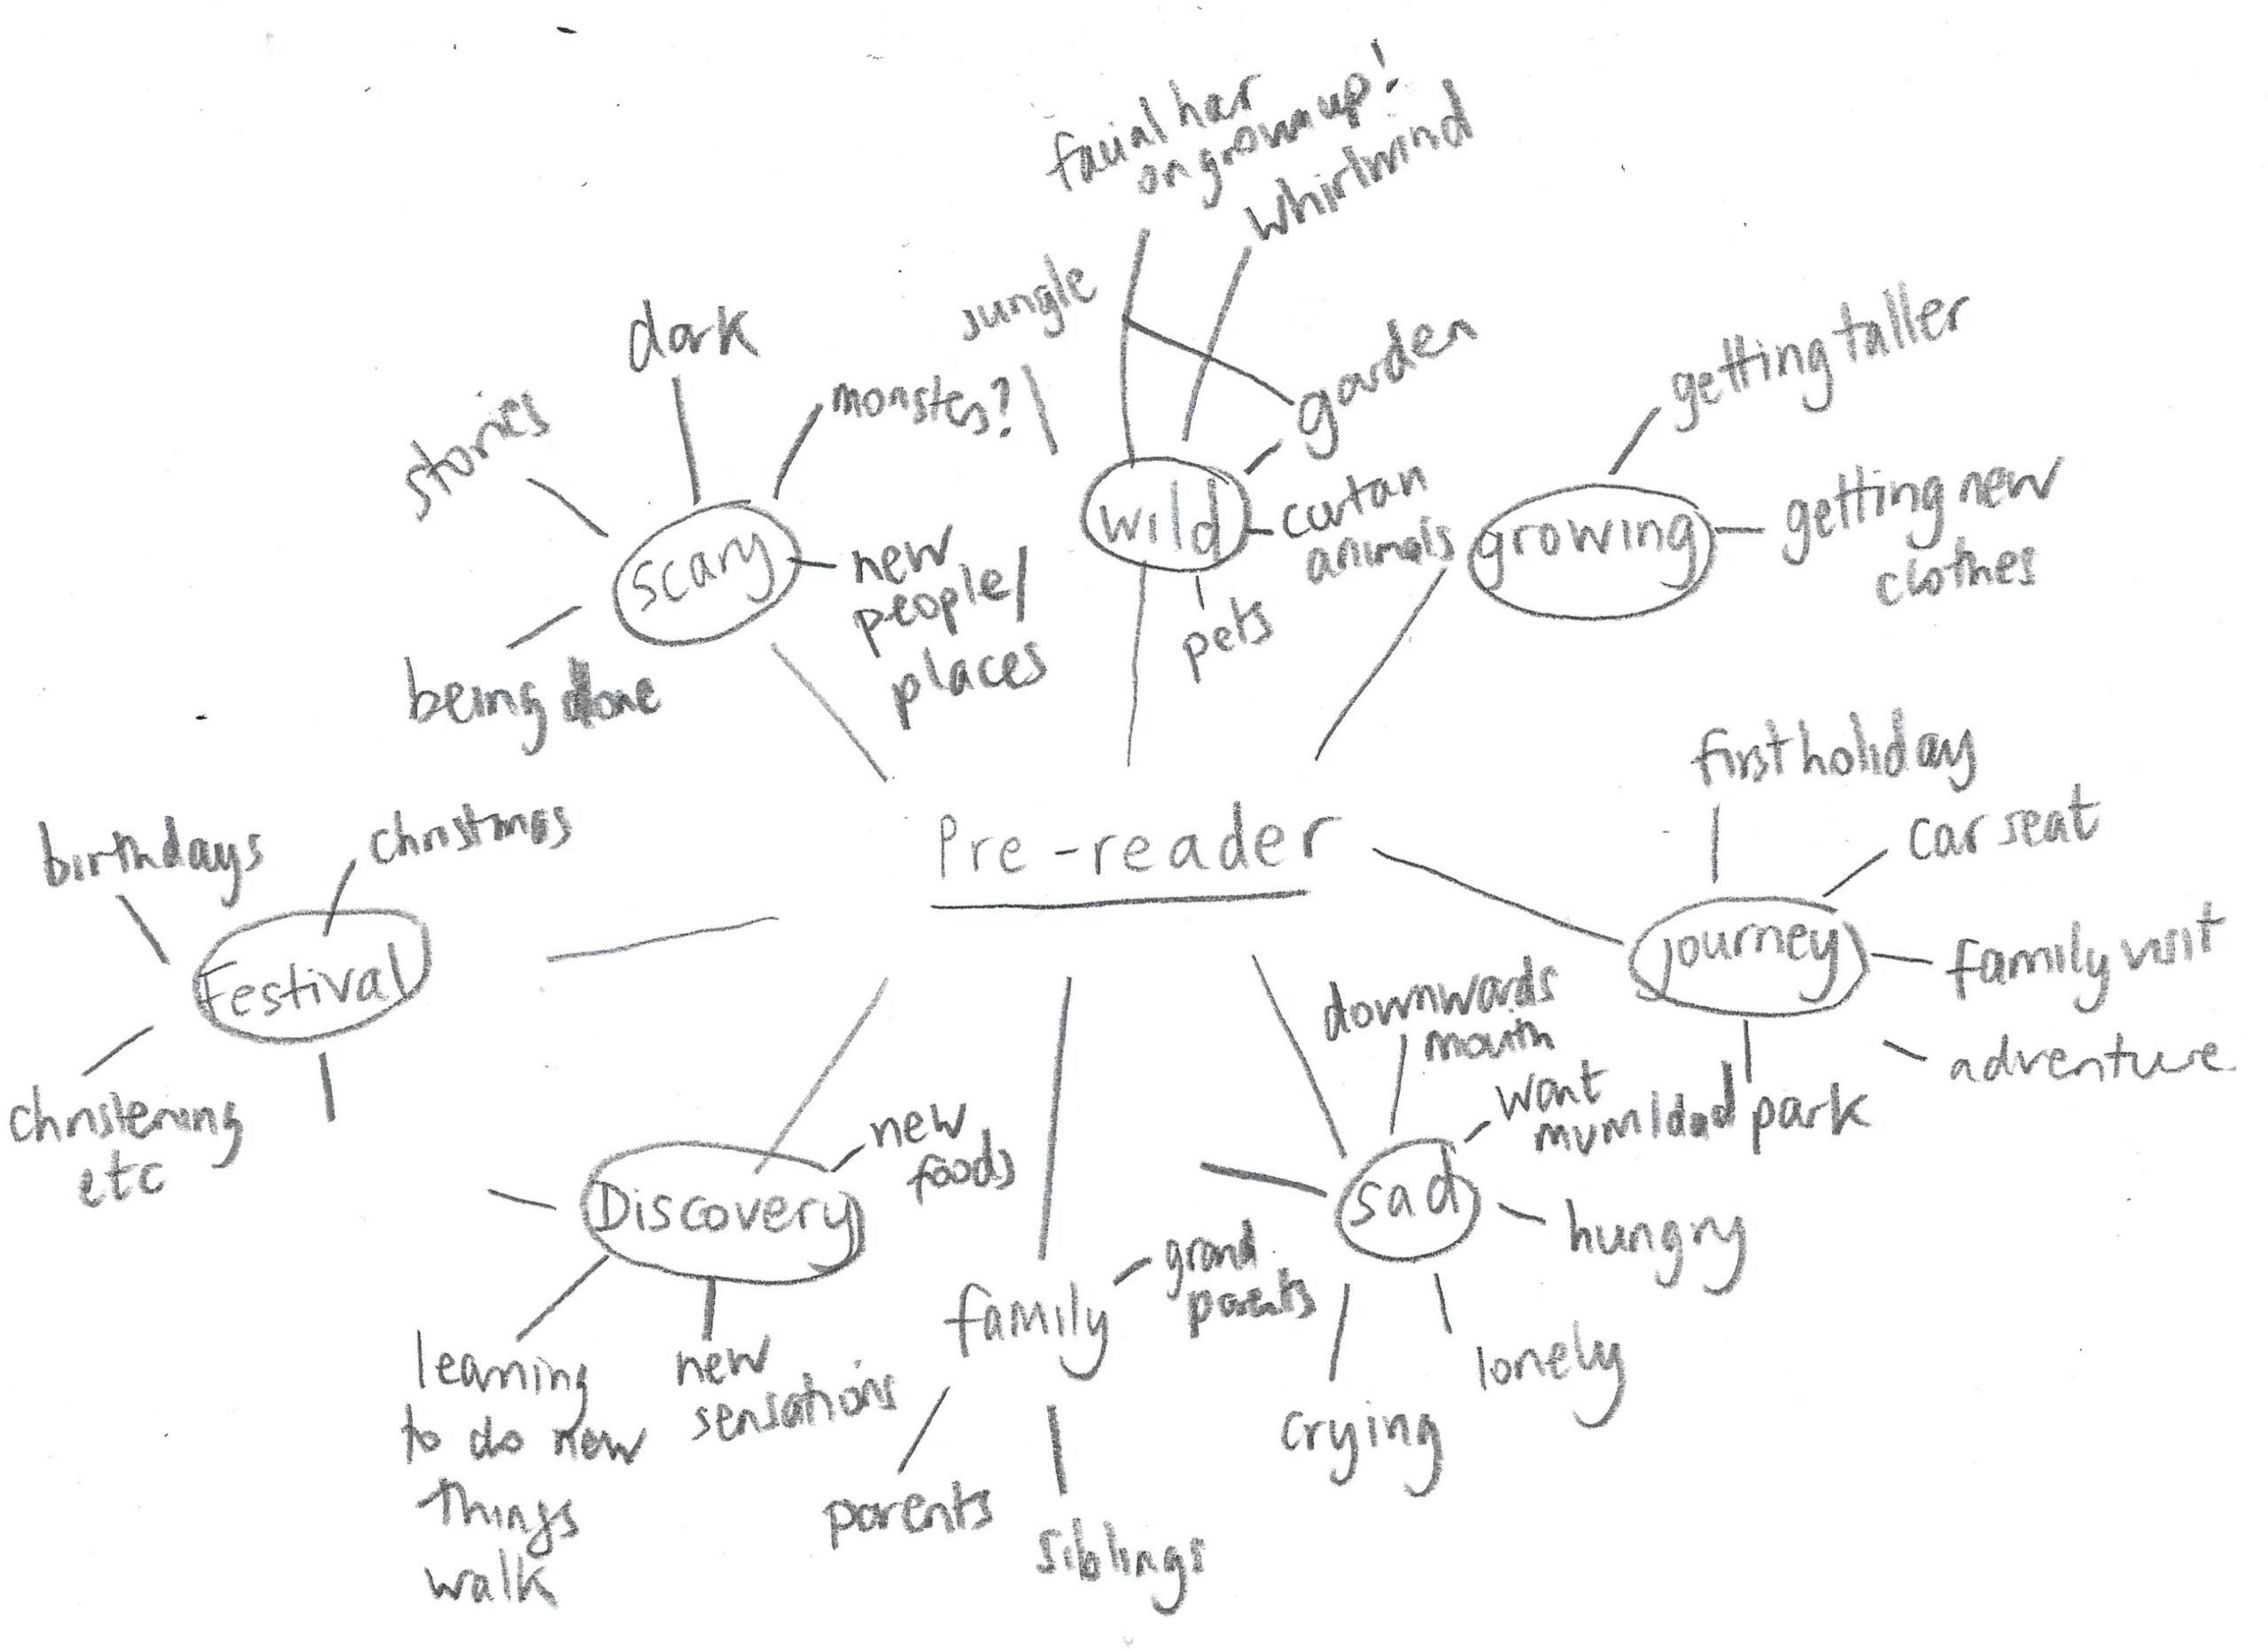 facial hair
on grown up!
whirlwind
jungle
garden
wild
cartan
animals
pets
dark
stories
monsters?
scary
new
people/
places
being alone
getting taller
growing
getting new
clothes
Pre-reader
first holiday
car seat
journey
family visit
adventure
park
birthdays
christmas
Festival
christening
etc
downwards
mouth
want
mum/dad
sad
hungry
lonely
crying
new
foods
Discovery
learning
to do new
things
walk
new
sensations
family
grand
parents
parents
siblings